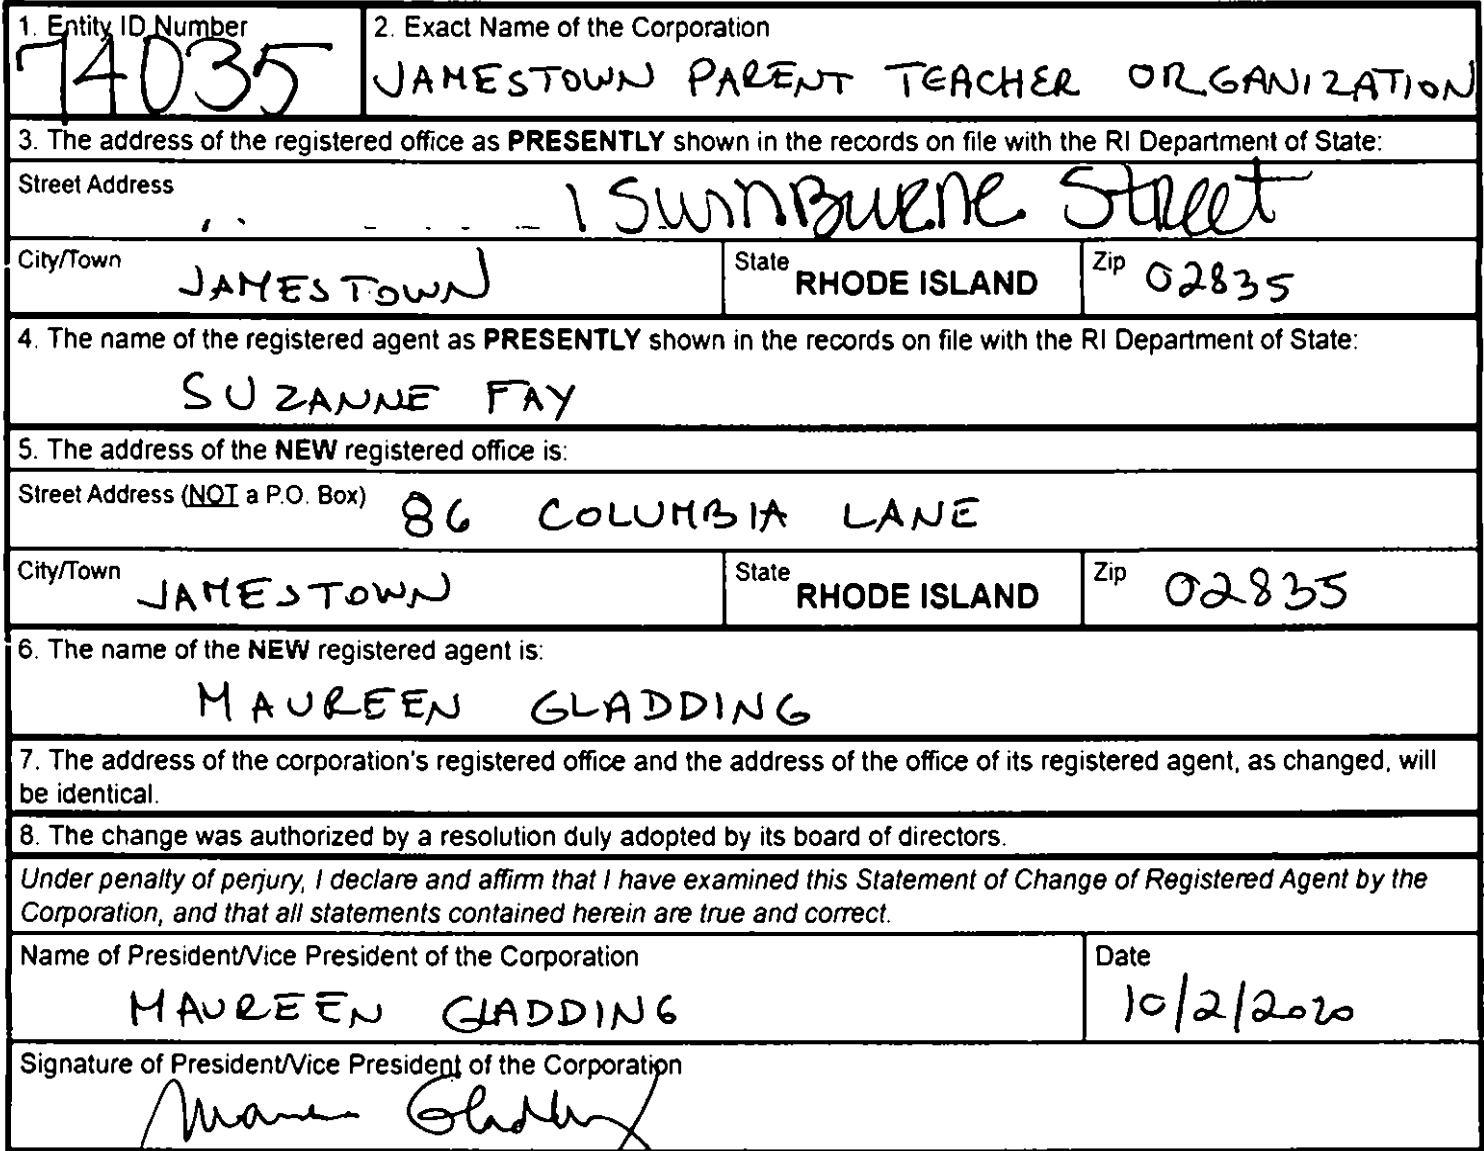 1. Entity ID Number
74035
2. Exact Name of the Corporation
JAMESTOWN PARENT TEACHER ORGANIZATION
3. The address of the registered office as PRESENTLY shown in the records on file with the RI Department of State:
Street Address
1 SwinBuRne Street
City/Town
JAMESTOWN
State
RHODE ISLAND
Zip
02835
4. The name of the registered agent as PRESENTLY shown in the records on file with the RI Department of State:
SUZANNE FAY
5. The address of the NEW registered office is:
Street Address (NOT a P.O. Box)
86 COLUMBIA LANE
City/Town
JAMESTOWN
State
RHODE ISLAND
Zip
02835
6. The name of the NEW registered agent is:
MAUREEN GLADDING
7. The address of the corporation's registered office and the address of the office of its registered agent, as changed, will
be identical.
8. The change was authorized by a resolution duly adopted by its board of directors.
Under penalty of perjury, I declare and affirm that I have examined this Statement of Change of Registered Agent by the
Corporation, and that all statements contained herein are true and correct.
Name of President/Vice President of the Corporation
MAUREEN GLADDING
Date
10/2/2020
Signature of President/Vice President of the Corporation
Maureen Gladding